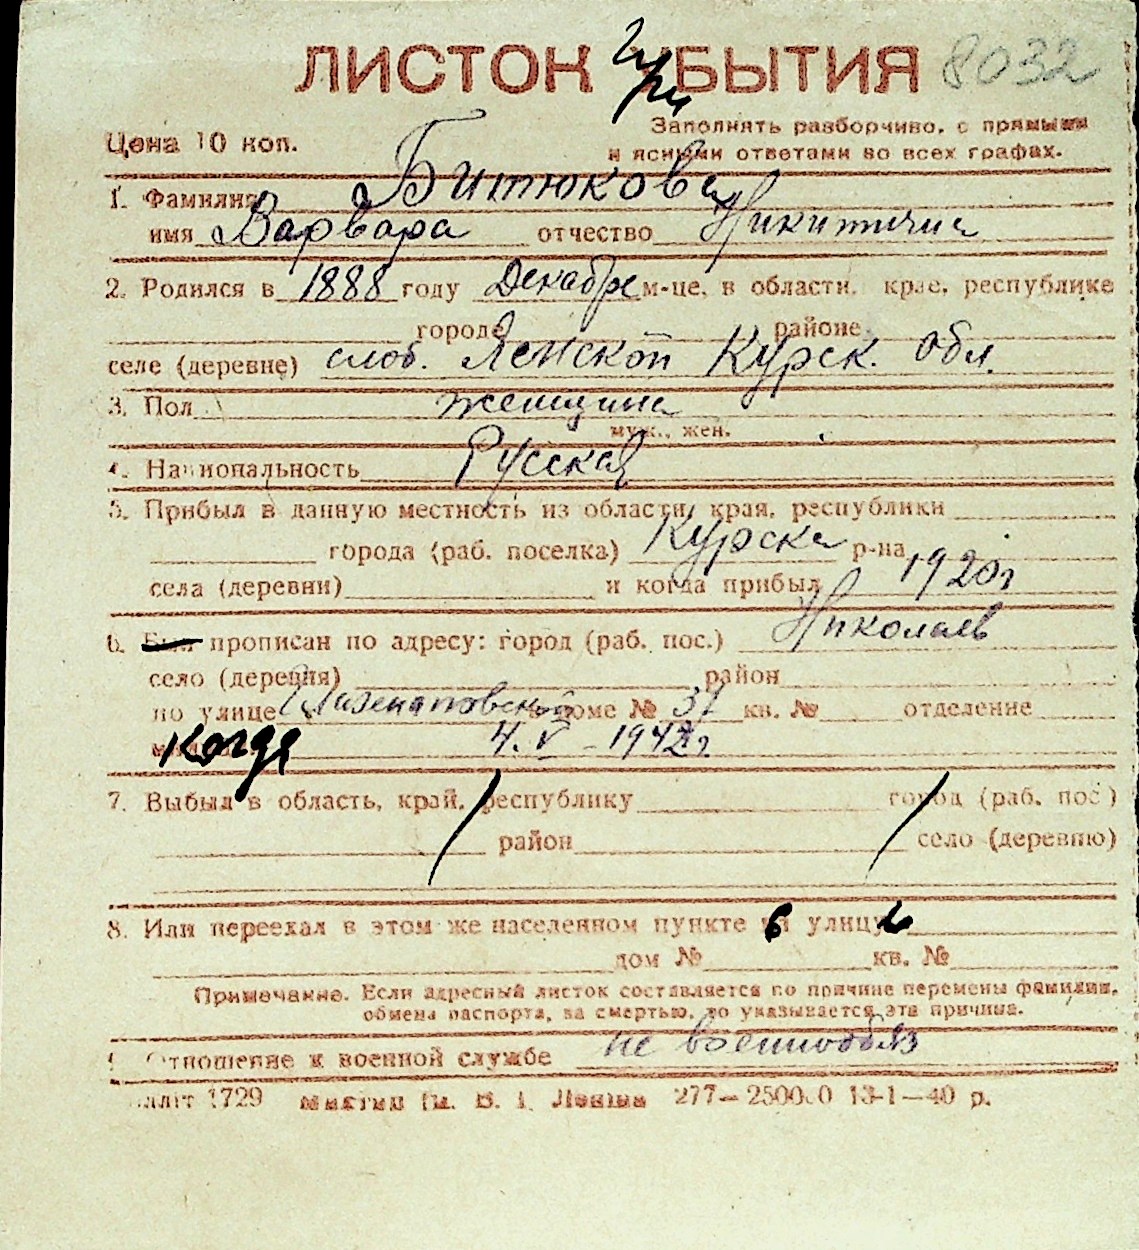 ЛИСТОК УБЫТИЯ 8032
при
Заполнять разборчиво, с прямыми
Цена 10 коп. и ясными ответами во всех графах.
1. Фамилия Битюкова
имя Варвара отчество Никитична
2. Родился в 1888 году Декабре м-це, в области, крае, республике
городе районе
селе (деревне) слоб. Ямской Курск. обл.
3. Пол женщина
муж., жен.
4. Национальность Русская
5. Прибыл в данную местность из области, края, республики
города (раб. поселка) Курска р-на
села (деревни) и когда прибыл 1920 г
6. Был прописан по адресу: город (раб. пос.) Николаев
село (деревня) район
по улице доме № 37 кв. № отделение
когда 4. V - 1942 г.
7. Выбыл в область, край, республику город (раб. пос.)
район село (деревню)
8. Или переехал в этом же населенном пункте в улицу
дом № кв. №
Примечание. Если адресный листок составляется по причине перемены фамилии,
обмена паспорта, за смертью, то указывается эта причина.
Отношение к военной службе не военнообяз
1729 277— 13-1—40 р.